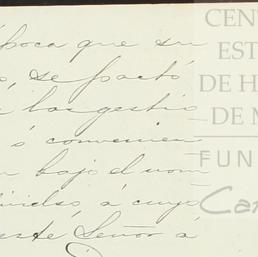 época que su
se pactó
las gestio
ó convenien
bajo el nom
á cuyo
este Señor á
CEN
EST
DE H
DE M
FUN
Car